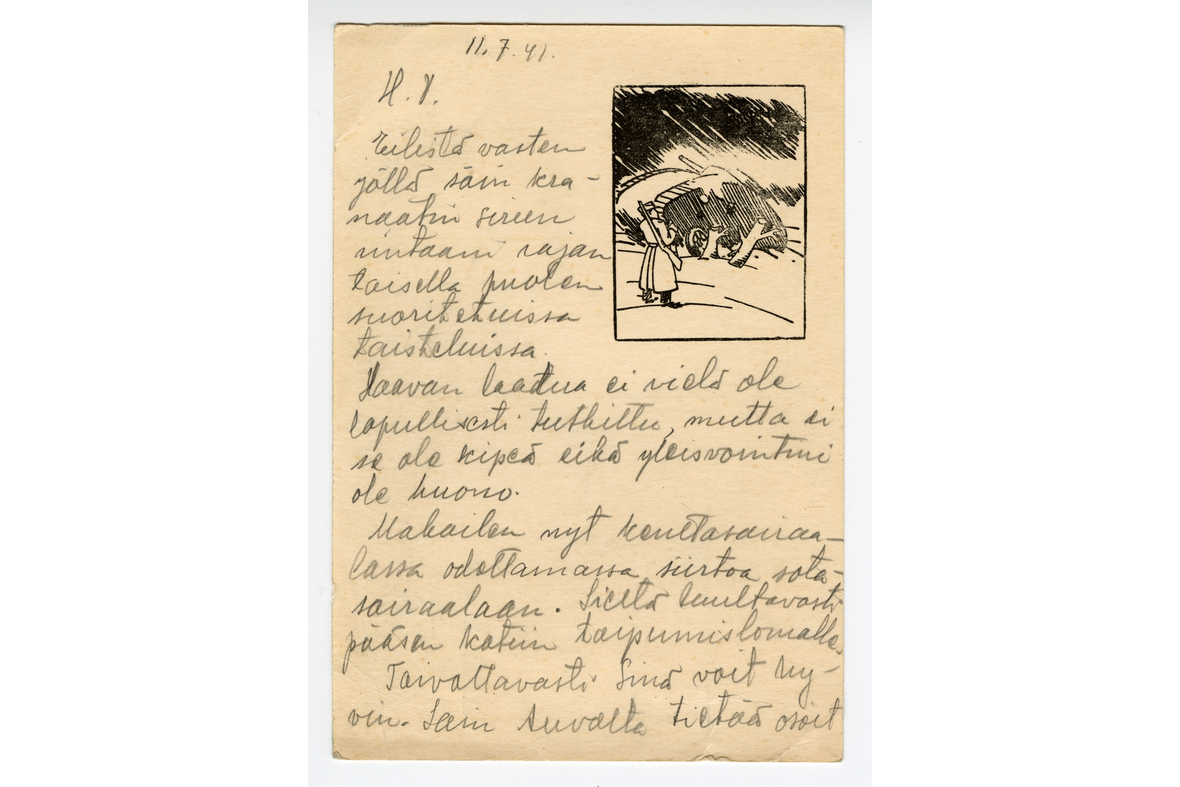 11.7.41.
H. V.
Eilistä vasten
yöllä sain kra-
naatin sireen
rintaani rajan
toisella puolen
suoritetuissa
taisteluissa.
Haavan laatua ei vielä ole
lopullisesti tutkittu, mutta ei
se ole kipeä eikä yleisvointini
ole huono.
Makailen nyt kenttäsairaa-
lassa odottamassa siirtoa sota-
sairaalaan. Sieltä luultavasti
pääsen kotiin toipumislomalle.
Toivottavasti Sinä voit hy-
vin. Sain tietää osoit